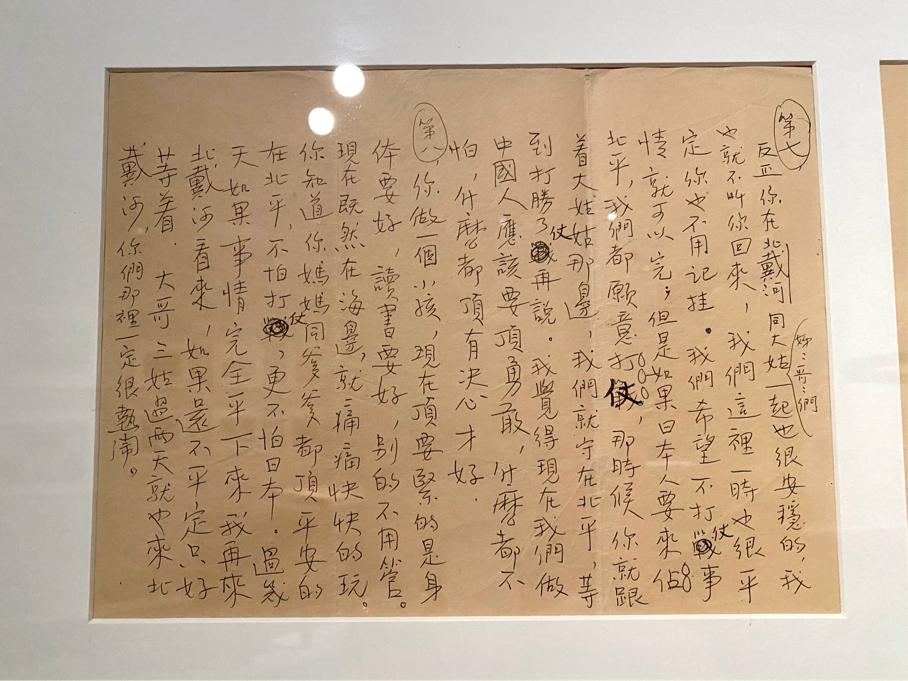 第七
反正你在北戴河同大姑姊:哥:們一起也很安穩的,我
也就不叫你回來,我們這裡一時也很平
定你也不用记挂。我們希望不打仗事
情就可以完;但是如果日本人要來佔
北平,我們都願意打仗,那時候你就跟
着大姑姑那邊,我們就守在北平,等
到打勝了仗再說。我覺得現在我們做
中國人應該要頂勇敢,什麼都不
怕,什麼都頂有決心才好.
第八,你做一個小孩,現在頂要緊的是身
体要好,讀書要好,别的不用管。
現在既然在海邊,就痛痛快快的玩。
你知道你媽媽同爹爹都頂平安的
在北平,不怕打仗,更不怕日本。過幾
天如果事情完全平下來我再來
北戴河看來,如果還不平定只好
等着.大哥三姑過两天就也來北
戴河,你們那裡一定很熱鬧。